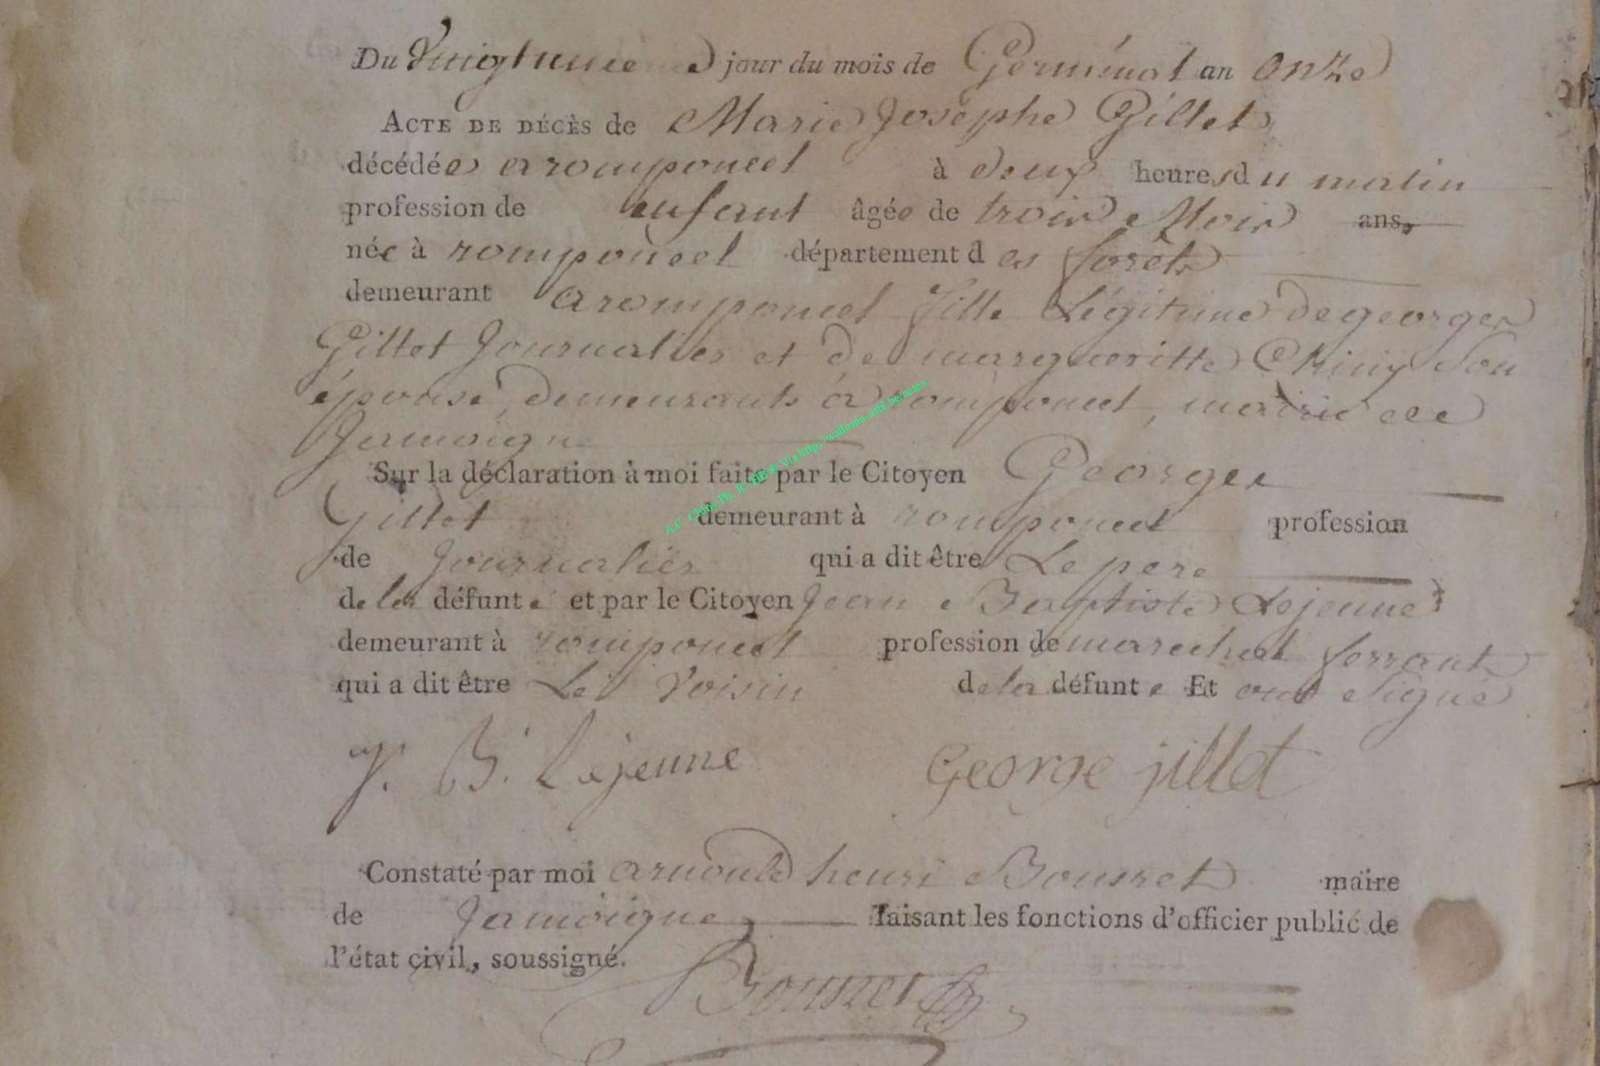 Du Vingt unieme jour du mois de Germinal an onze
ACTE DE DÉCÈS de Marie Josephe Gillet
décédée a romponcel à deux heures du matin
profession de enfant âgée de trois Mois ans
née à romponcel département des forêts
demeurant a romponcel fille Légitime de georges
Gillet Journalier et de margueritte Chiny Son
épouse, demeurants à romponcel, mairie de
Jamoigne
Sur la déclaration à moi faite par le Citoyen Georges
Gillet demeurant à romponcel profession
de Journalier qui a dit être Le pere
de la défunte et par le Citoyen Jean Baptiste Lejeune
demeurant à romponcel profession de marechal ferrant
qui a dit être Le Voisin de la défunte Et ont Signé
J. B. Lejeune George jillet
Constaté par moi arnould henri Bourret maire
de Jamoigne faisant les fonctions d'officier public de
l'état civil, soussigné.
Bourret